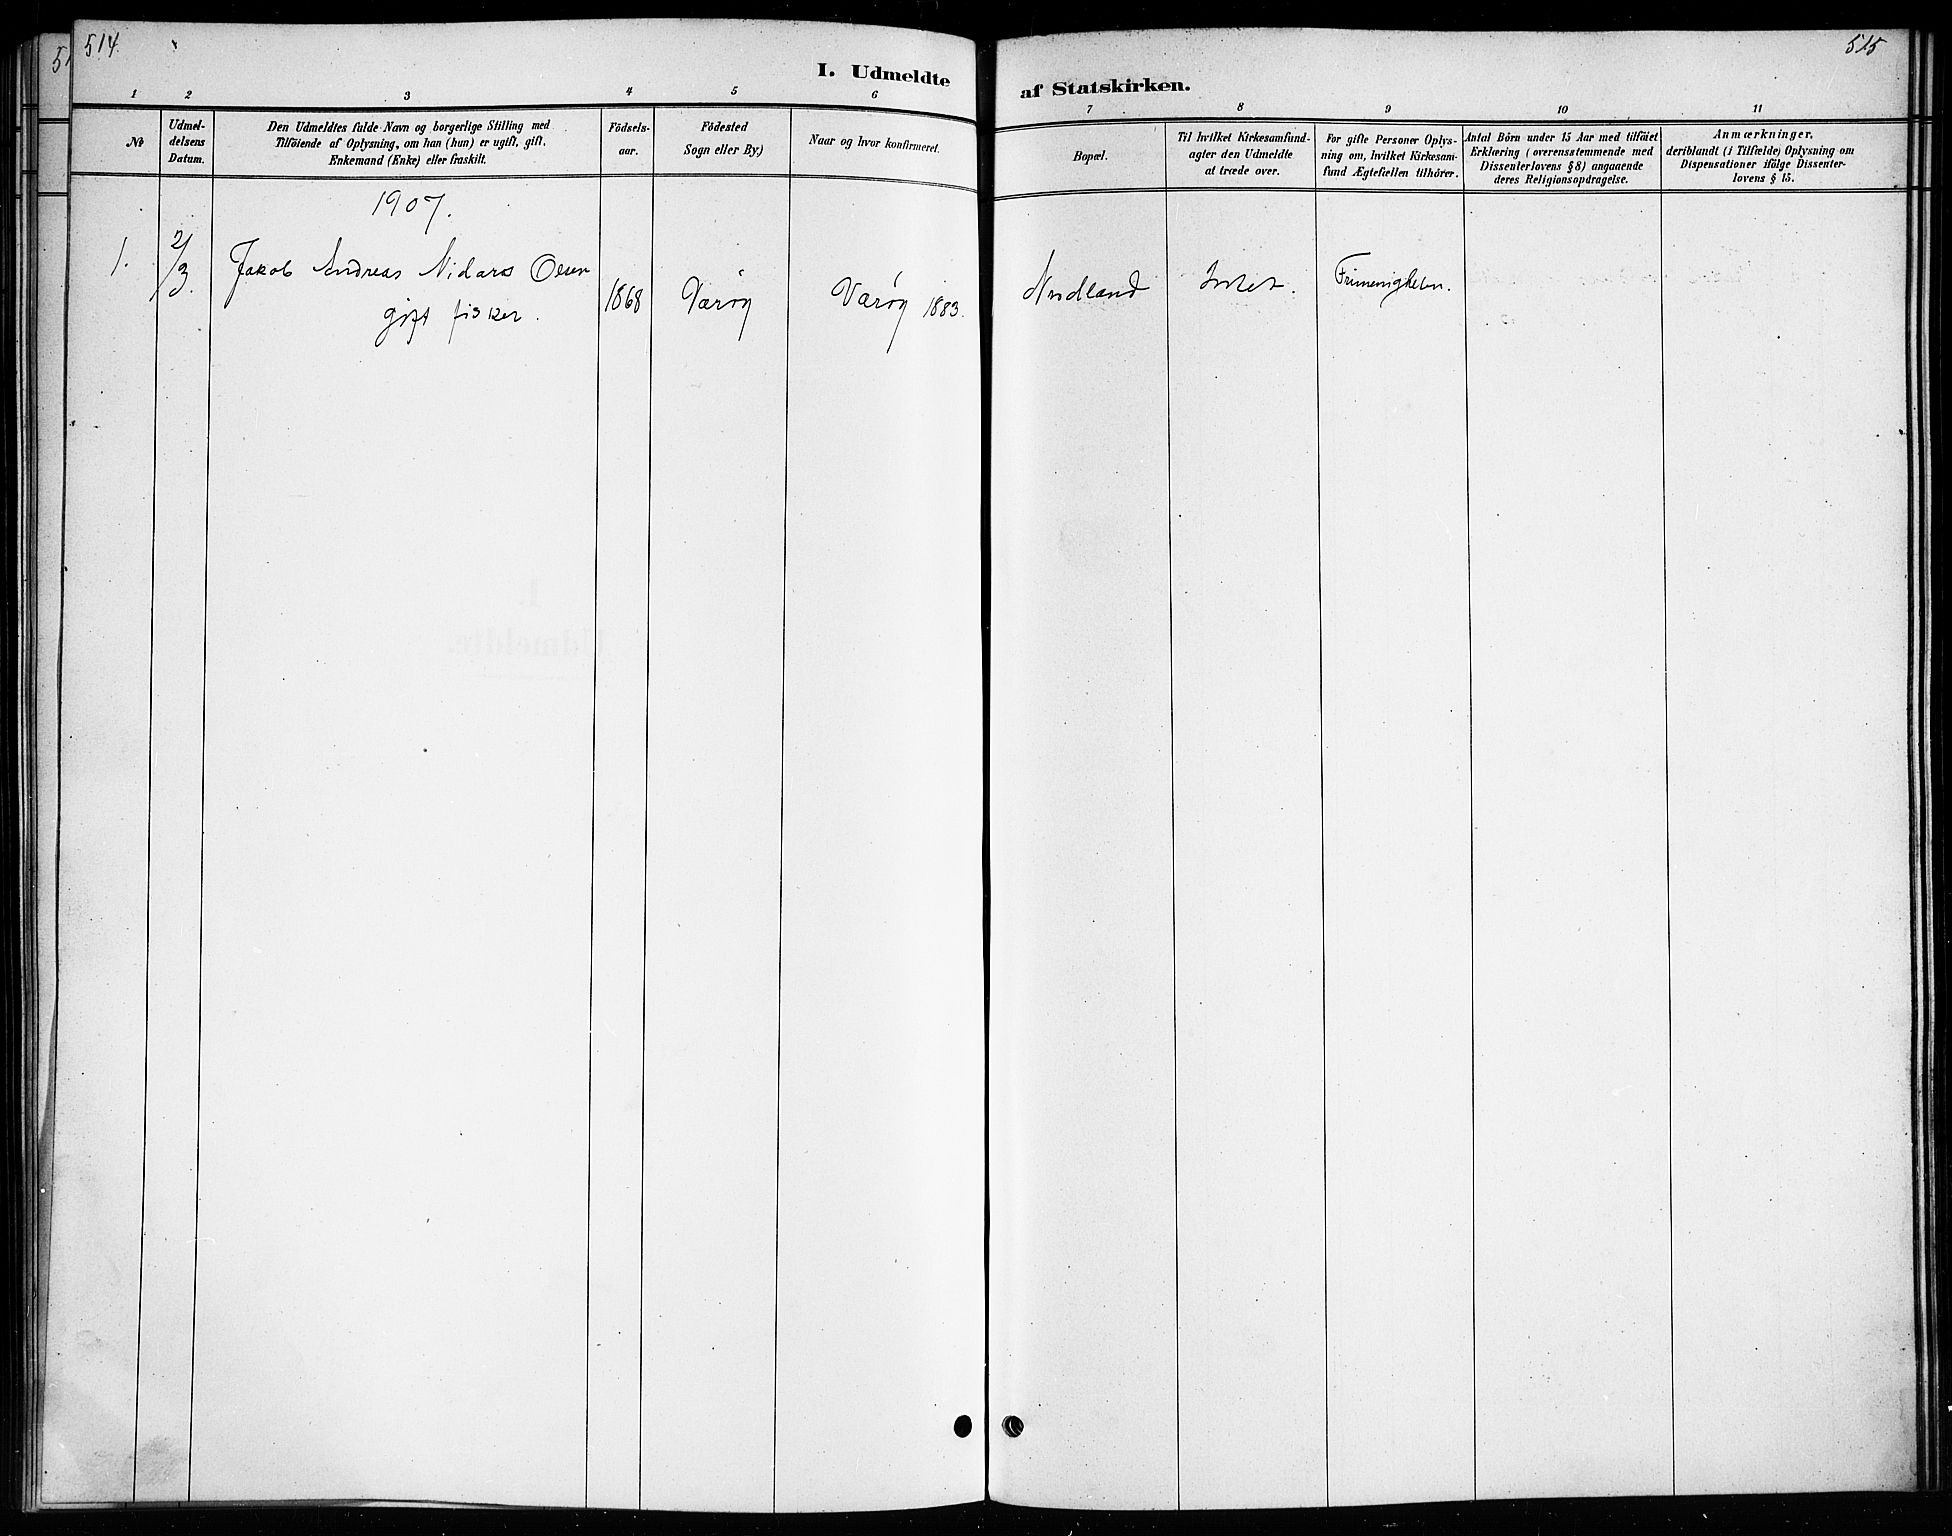 514
515
I. Udmeldte af Statskirken.
1 2 3 4 5 6 7 8 9 10 11
No
Udmel-
delsens
Datum.
Den Udmeldtes fulde Navn og borgerlige Stilling med
Tilföiende af Oplysning, om han (hun) er ugift, gift,
Enkemand (Enke) eller fraskilt.
Födsels-
aar.
Födested
Sogn eller By.)
Naar og hvor konfirmeret.
Bopæl.
Til hvilket Kirkesamfund-
agter den Udmeldte
at træde over.
For gifte Personer Oplys-
ning om, hvilket Kirkesam-
fund Ægtefællen tilhörer.
Antal Börn under 15 Aar med tilföiet
Erklæring (overensstemmende med
Dissenterlovens § 8) angaaende
deres Religionsopdragelse.
Anmærkninger,
deriblandt (i Tilfælde) Oplysning om
Dispensationer ifölge Dissenter-
lovens § 15.
1907.
1. 2/3. Jakob Andreas Nidaros Olsen
gift fisker.
1868
Værøy
Værøy 1883.
Nordland
Intet.
Frimenigheten.